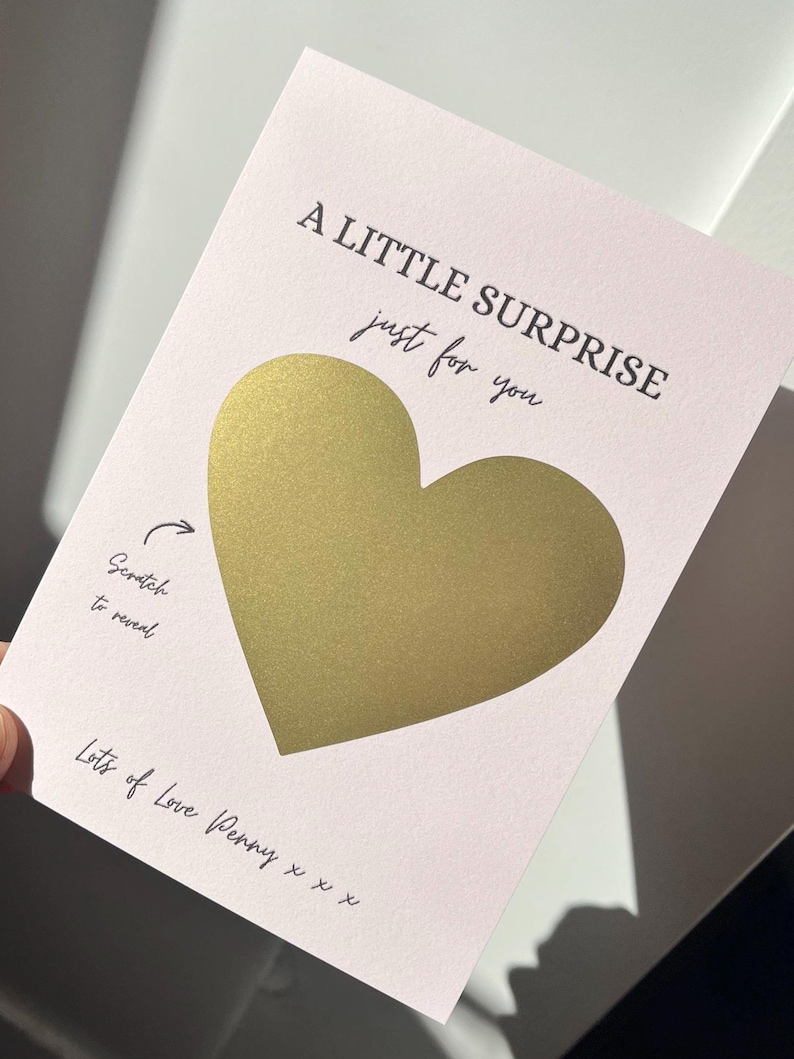 A LITTLE SURPRISE
just for you
Scratch
to reveal
Lots of Love Penny x x x